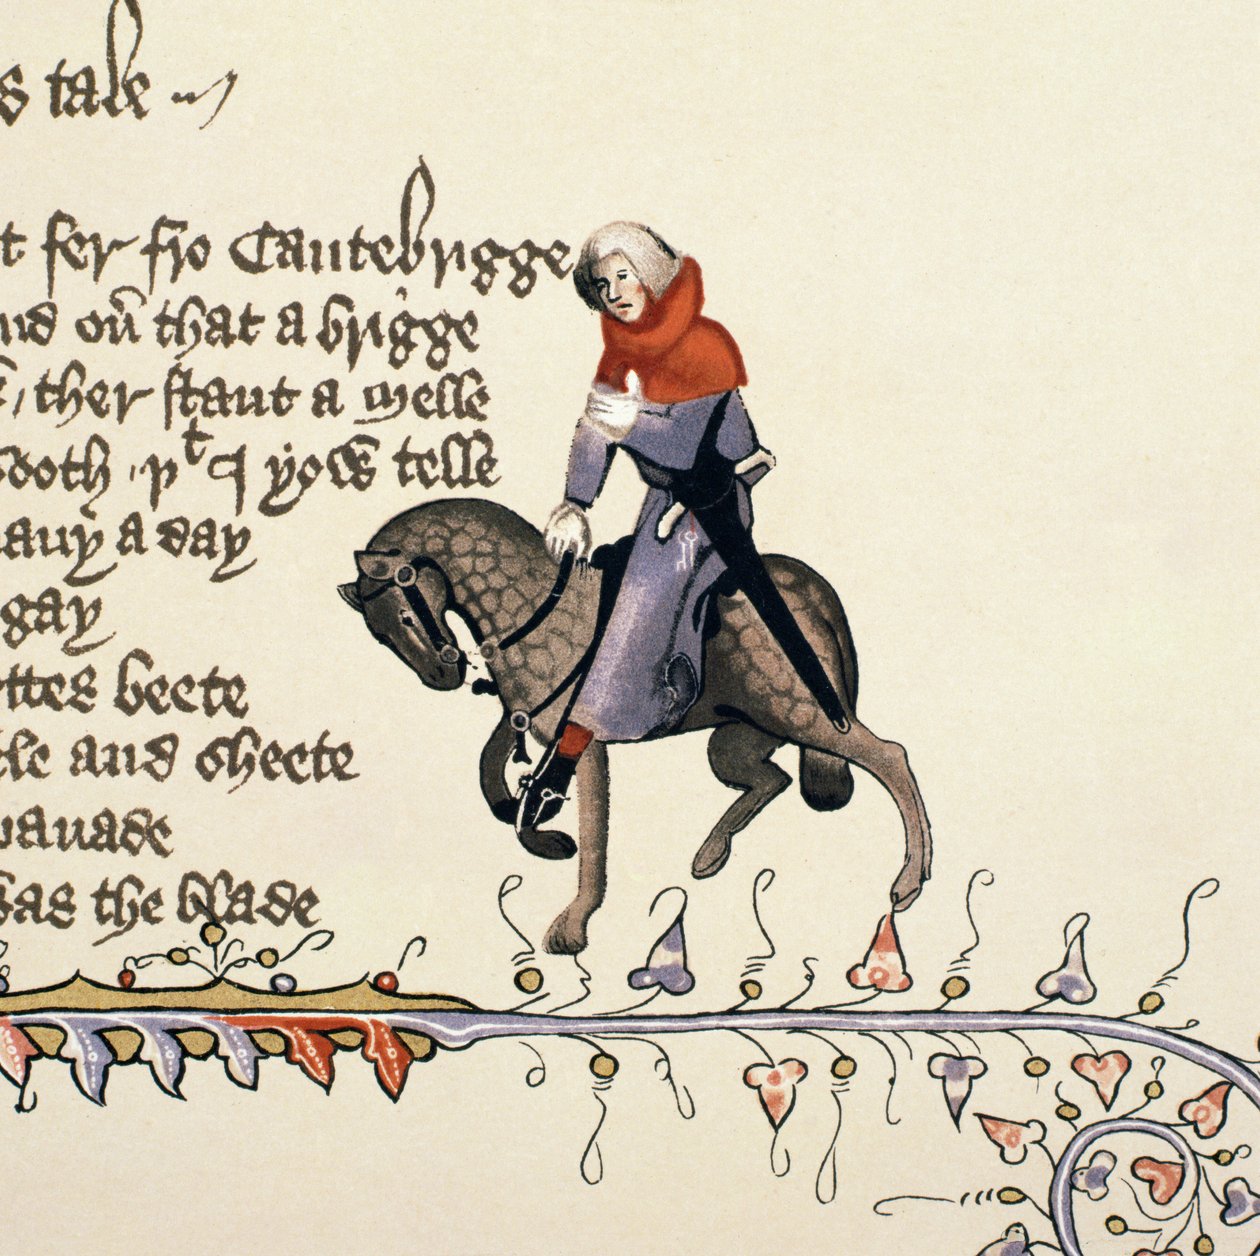 s tale
t fer fro Cantebrigge
nd ou̅ that a brigge
, ther stant a Melle
sooth, þᵗ I yow telle
any a day
gay
ettes beete
tle and sheete
pauade
was the blade